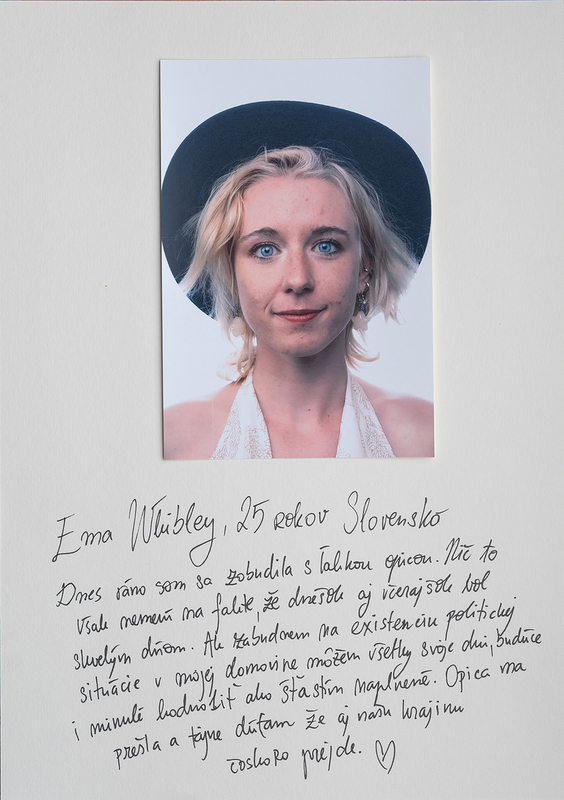 Ema Whibley, 25 rokov Slovensko
Dnes ráno som sa zobudila s ľahkou opicou. Nič to
však nemení na fakte, že dnešok aj včerajšok bol
skvelým dňom. Ak zabudnem na existenciu politickej
situácie v mojej domovine môžem všetky svoje dni, budúce
i minulé hodnotiť ako šťastím naplnené. Opica ma
prešla a tajne dúfam že aj našu krajinu
čoskoro prejde. ♡